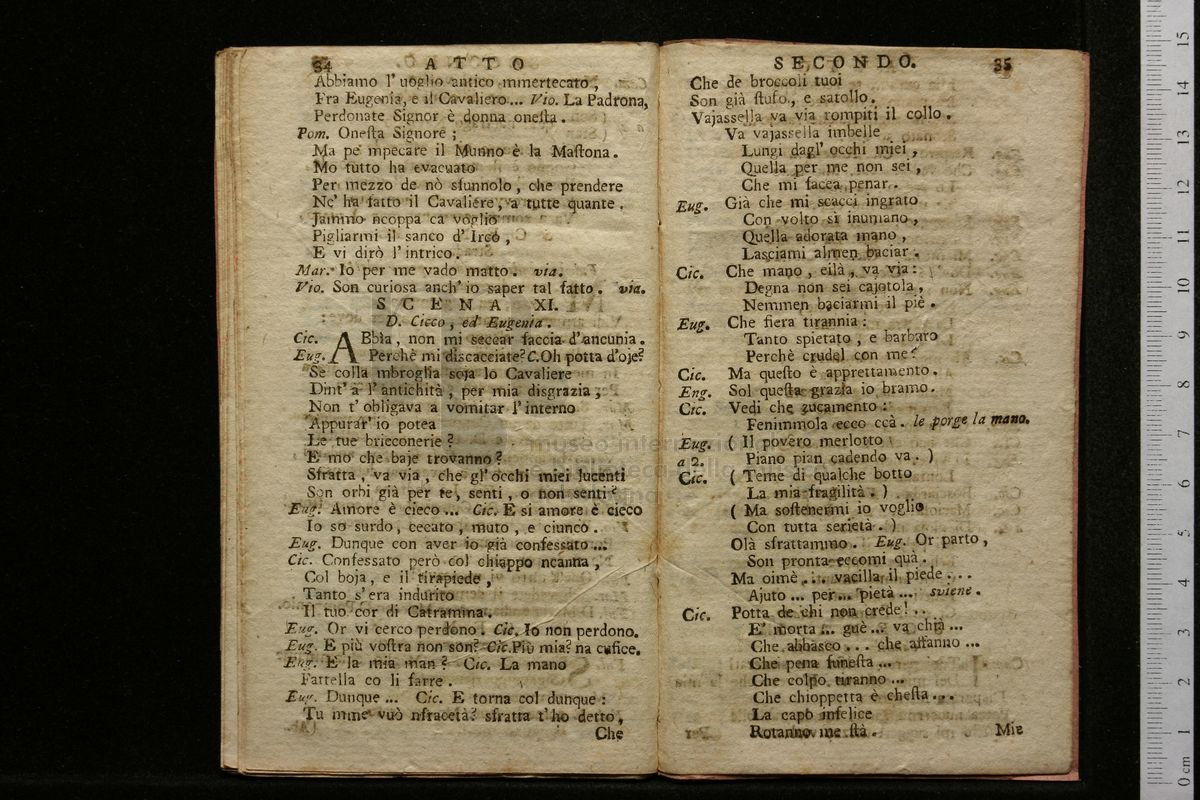 34 ATTO
Abbiamo l' uoglio antico mmertecato,
Fra Eugenia, e il Cavaliero... Vio. La Padrona,
Perdonate Signor è donna onesta.
Pom. Onesta Signore;
Ma pe' mpecare il Munno è la Mastona.
Mo tutto ha evacuato
Per mezzo de nò sfunnolo, che prendere
Nc' ha fatto il Cavaliere, a tutte quante.
Jammo ncoppa ca voglio
Pigliarmi il sanco d' Irco,
E vi dirò l' intrico.
Mar. Io per me vado matto. via.
Vio. Son curiosa anch' io saper tal fatto. via.
SCENA XI.
D. Cicco, ed Eugenia.
Cic. ABbìa, non mi seccar faccia d'ancunia.
Eug. Perchè mi discacciate? C. Oh potta d'oje?
Se colla mbroglia soja lo Cavaliere
Dint' a l' antichità, per mia disgrazia,
Non t' obligava a vomitar l' interno
Appurar' io potea
Le tue briconerie?
E mo che baje trovanno?
Sfratta, va via, che gl' occhi miei lucenti
Son orbi già per te, senti, o non senti?
Eug. Amore è cieco... Cic. E si amore è cieco
Io so surdo, cecato, muto, e ciunco.
Eug. Dunque con aver io già confessato...
Cic. Confessato però col chiappo ncanna,
Col boja, e il tirapiede,
Tanto s' era indurito
Il tuo cor di Catramina.
Eug. Or vi cerco perdono. Cic. Io non perdono.
Eug. E più vostra non son? Cic. Più mia? na cufice.
Eug. E la mia man? Cic. La mano
Fattella co li farre.
Eug. Dunque... Cic. E torna col dunque:
Tu mme vuò nfracetà? sfratta t' ho detto,
Che
SECONDO. 35
Che de broccoli tuoi
Son già stufo, e satollo.
Vajassella va via rompiti il collo.
Va vajassella imbelle
Lungi dagl' occhi miei,
Quella per me non sei,
Che mi facea penar.
Eug. Già che mi scacci ingrato
Con volto sì inumano,
Quella adorata mano,
Lasciami almen baciar.
Cic. Che mano, eilà, va via:
Degna non sei cajotola,
Nemmen baciarmi il piè.
Eug. Che fiera tirannia:
Tanto spietato, e barbaro
Perchè crudel con me?
Cic. Ma questo è apprettamento.
Eng. Sol questa grazia io bramo.
Cic. Vedi che zucamento:
Fenimmola ecco ccà. le porge la mano.
Eug. ( Il povero merlotto
a 2. Piano pian cadendo va. )
Cic. ( Teme di qualche botto
La mia fragilità. )
( Ma sostenermi io voglio
Con tutta serietà. )
Olà sfrattammo. Eug. Or parto,
Son pronta eccomi quà.
Ma oimè... vacilla il piede...
Ajuto... per... pietà... sviene.
Cic. Potta de chi non crede!..
E' morta... guè... va chià...
Che abbasco... che affanno...
Che pena funesta...
Che colpo tiranno...
Che chioppetta è chesta...
La capo infelice
Rotanno me stà.
Mie